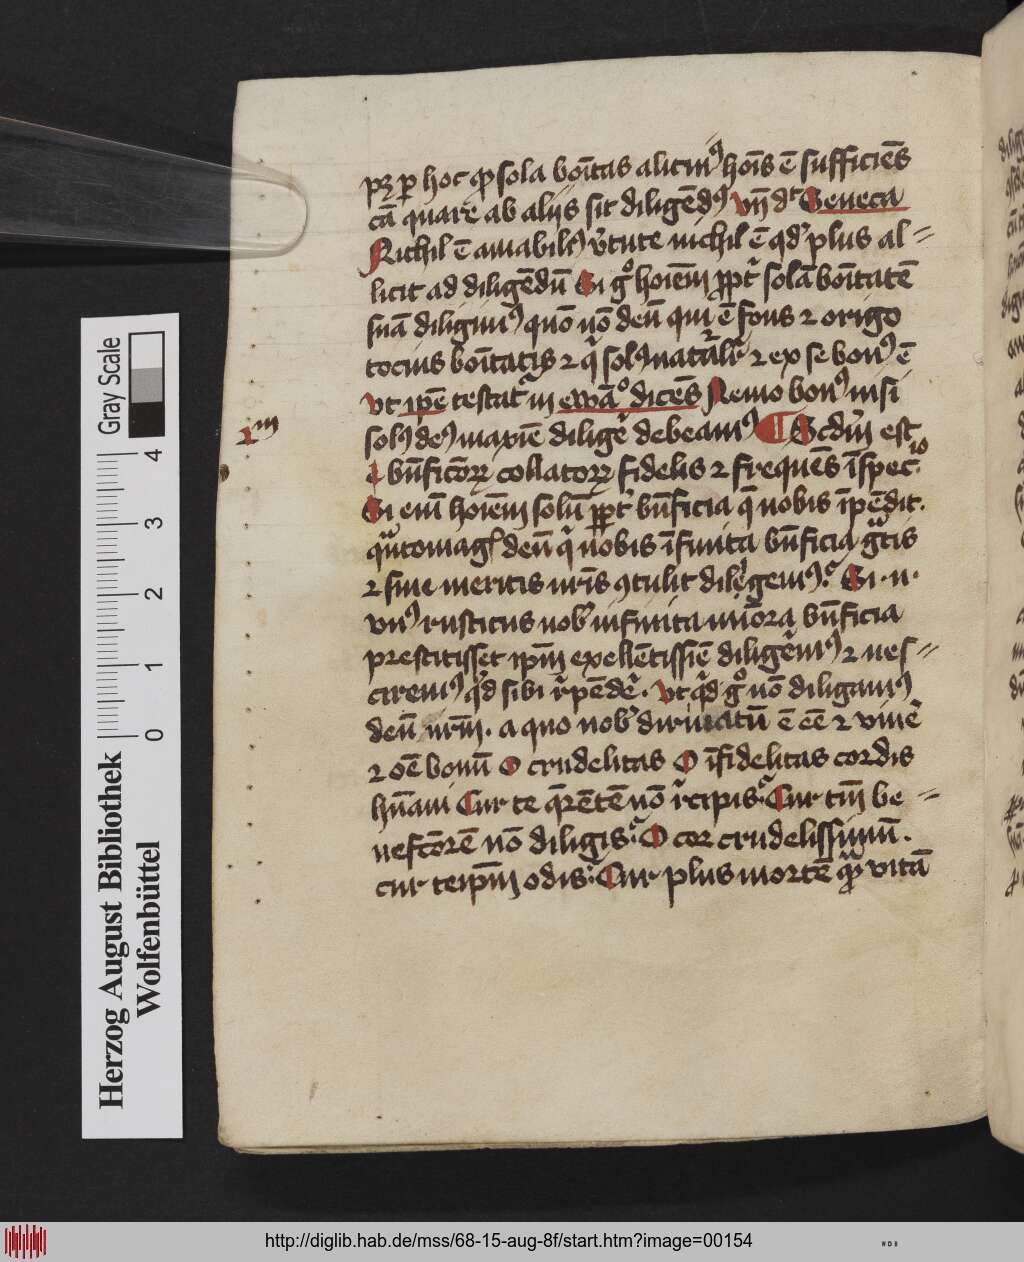 pꝫ p hoc ꝙ sola boītas alicuiꝰ hoīs ē sufficiēs
cā quare ab alijs sit diligēdꝰ vn̄ dt Seneca
Nichil ē amabiliꝰ v̓tute nichil ē qd̓ plus al=
licit ad diligēdū Si gͦ hoīem ꝓpt̓ solā boītatē
suā diligimꝰ quō nō deū qui ē fons ⁊ origo
tocius boītatis ⁊ q̓ solꝰ nat̓alr̓ ⁊ ex se bonꝰ ē
vt ip̄e testat̓ in ewāͦ dicēs Nemo bonꝰ nisi
solꝰ deꝰ maxīe dilige̓ debeamꝰ ¶ Scdm̄ est
ıͫ
bn̄ficōꝝ collatoꝝ fidelis ⁊ frequēs īspecͥͦ
Si eni hoīem solū ꝓpt̓ bn̄ficia q̄ nobis īpēdit.
qͣntomagꝭ deū q̓ nobis īfinita bn̄ficia gͣtis
⁊ sine meritis nr̄is ꝯtulit diligemꝰ Si .n.
vnꝰ rusticus nob̓ infinita minora bn̄ficia
prestitisset ip̄m exellētissīe diligēmꝰ ⁊ nes=
ciremꝰ qͥd sibi r̓pēde̓. vt qͥd gͦ nō diligamꝰ
deū nr̄m. a quo nob̓ diriuatū ē eē ⁊ viue̓
⁊ oē bonū O crudelitas O īfidelitas cordis
hūani Cur te q̄rētē nō r̓cipis Cur tm̄ be=
nefcōrē nō diligis O cor crudelissimū.
cur teip̄m odis Cur plus mortē qͣꝫ vitā
Gray Scale
0 1 2 3 4
Herzog August Bibliothek
Wolfenbüttel
http://diglib.hab.de/mss/68-15-aug-8f/start.htm?image=00154